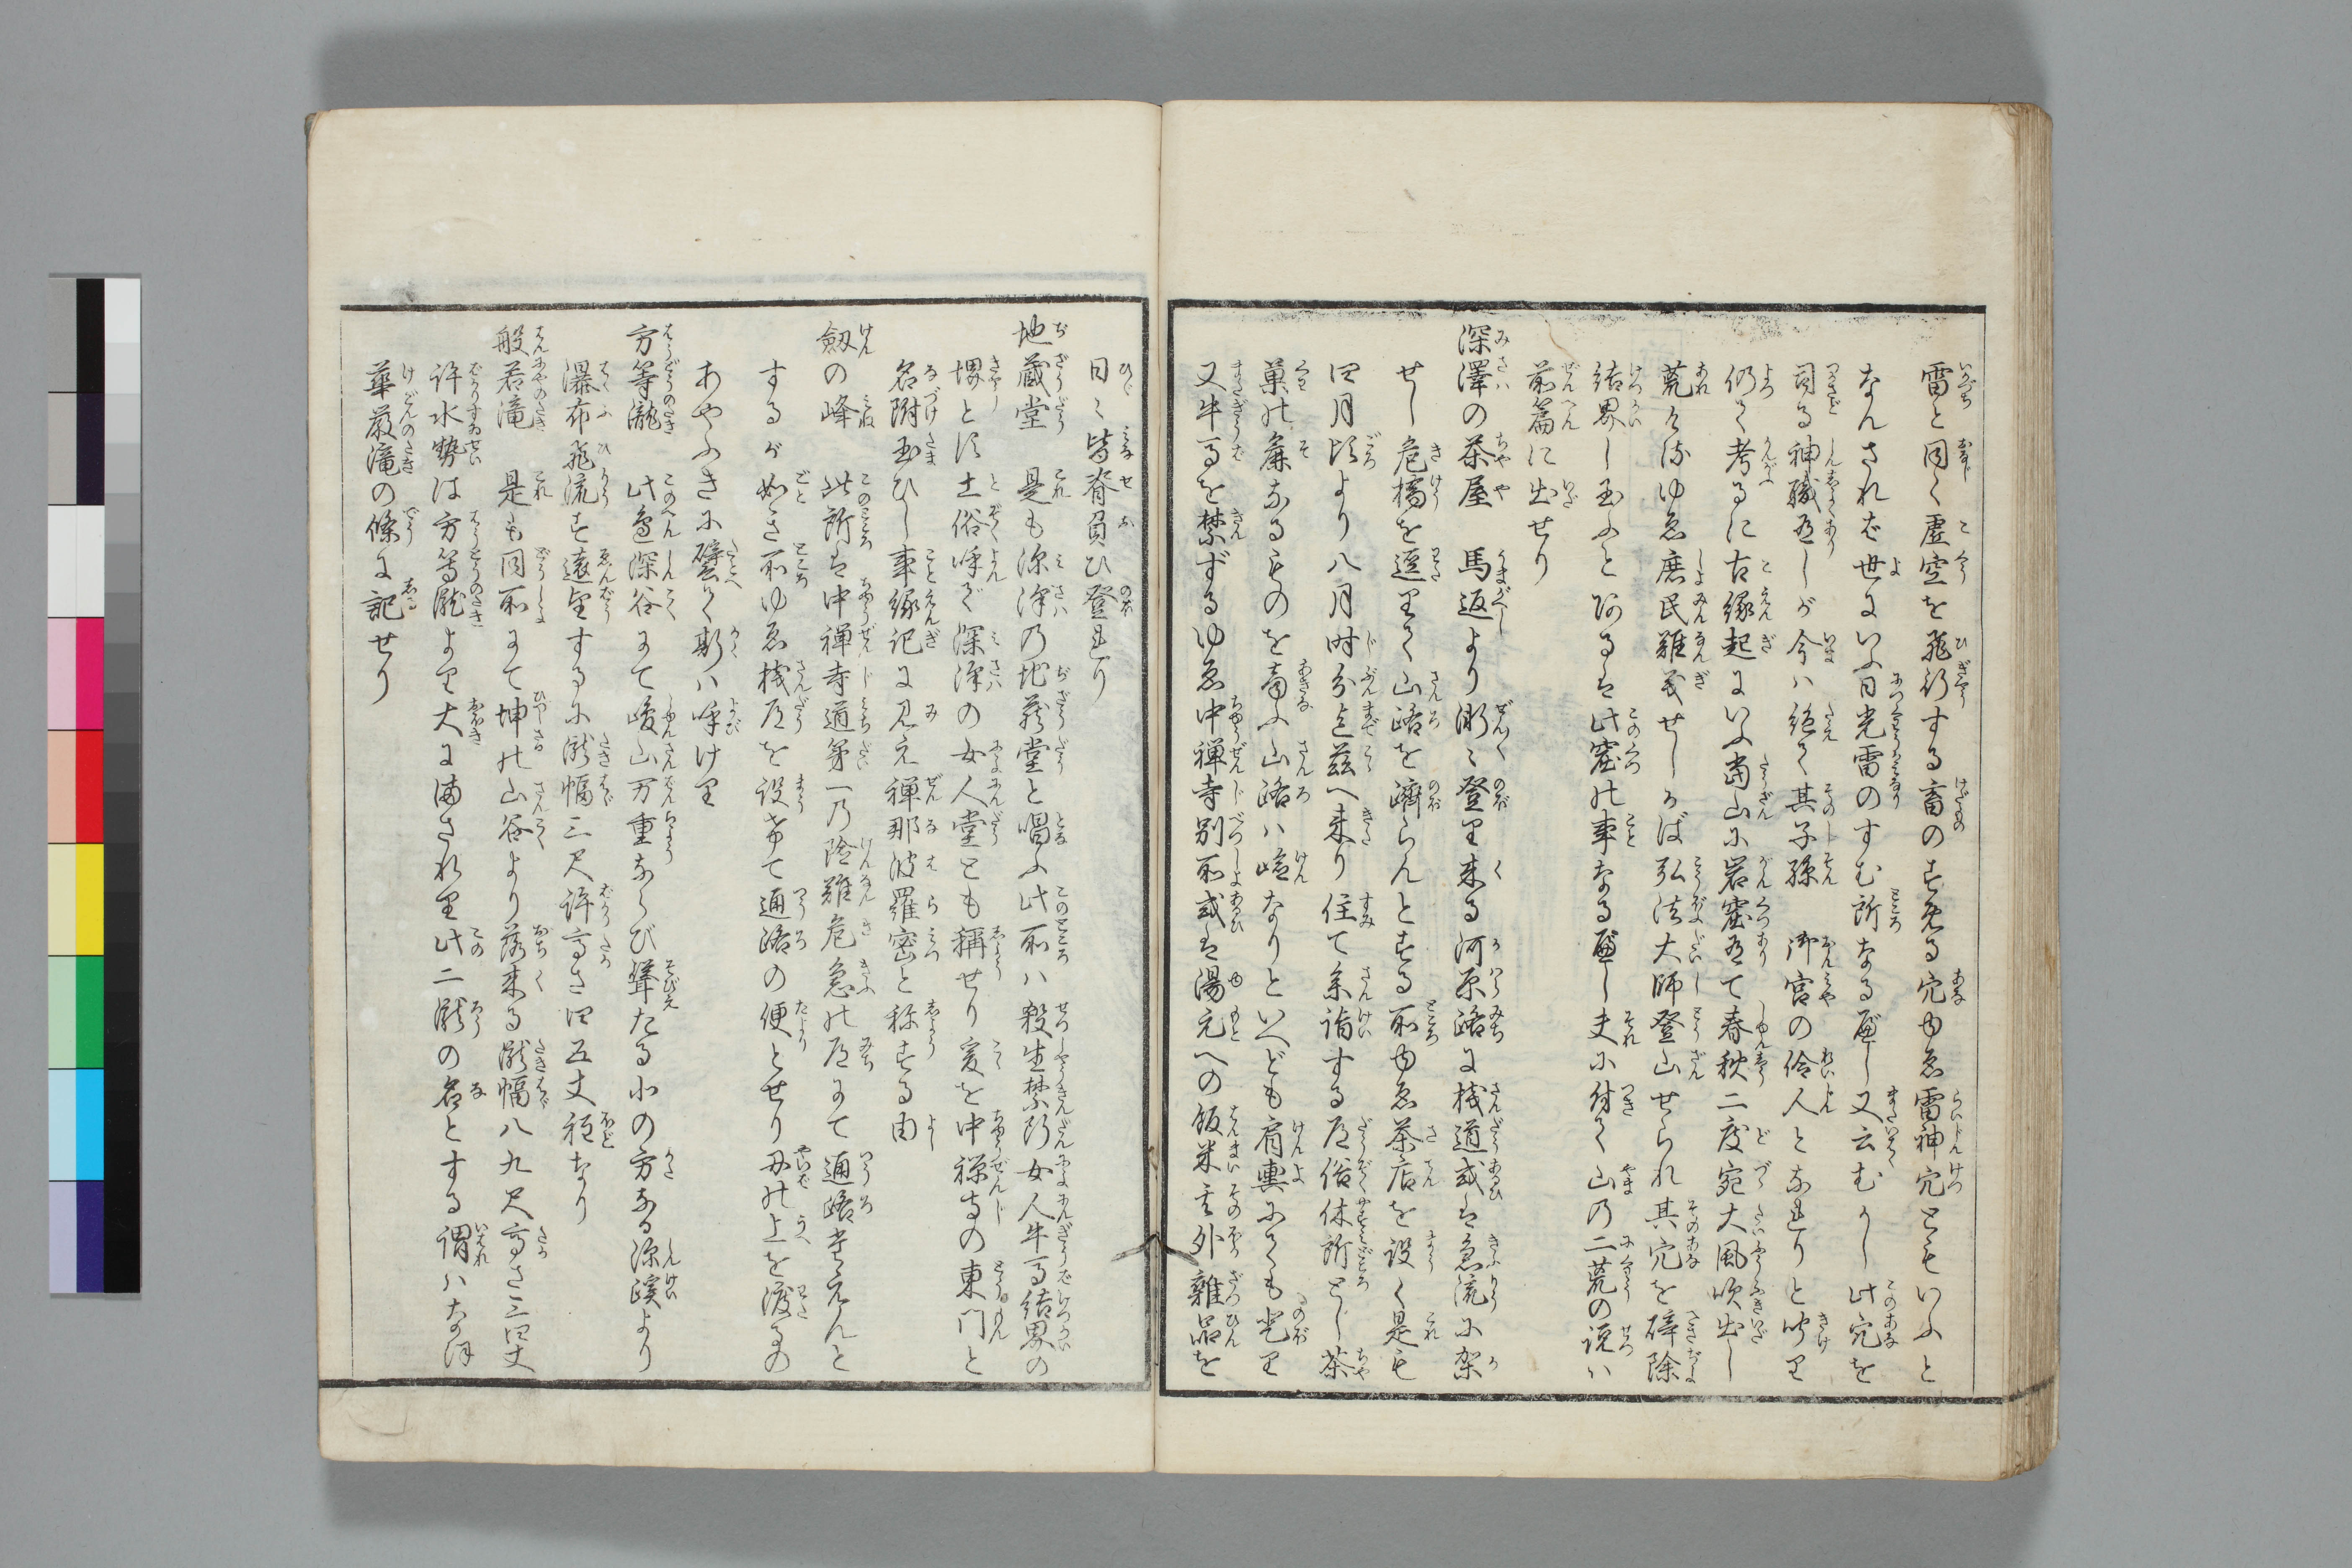 雷と同く虚空を飛行する畜のすめる穴ゆゑ雷神穴ともいふと
なんされば世にいふ日光雷のすむ所なるべし又云むかし此穴を
司る神職有しが今ハ絶て其子孫 御宮の伶人となれりと聞り
仍て考るに古縁起にいふ当山に岩窟有て春秋二度宛大風吹出し
荒けるゆゑ庶民難義せしかば弘法大師登山せられ其穴を碎除
結界し玉ふとあるは此窟の事なるべし夫に付て山の二荒の説ハ
前篇に出せり
深澤の茶屋 馬返より漸々登り来る河原路に桟道或は急流に架
せし危橋を逗りて山路を躋らんとする所ゆゑ茶店を設く是も
四月頃より八月時分迄茲へ来り住て参詣する道俗休所とし茶
菓の麁なるものを商ふ山路ハ嶮なりといへども肩輿にても登り
又牛馬を禁ずるゆゑ中禅寺別所或は湯元への飯米其外雑品を
日々皆脊負ひ登れり
地蔵堂 是も深澤の地蔵堂と唱ふ此所ハ殺生禁断女人牛馬結界の
堺とす土俗呼で深澤の女人堂とも稱せり爰を中禅寺の東門と
名附玉ひし事縁記に見え禅那波羅密と称する由
劔の峰 此所は中禅寺道第一の険難危急の道にて通路たえんと
するが如き所ゆゑ桟道を設けて通路の便とせり刃の上を渡るの
あやふきに譬て斯ハ呼けり
方等瀧 此邉深谷にて峻山万重ならび聳たる北の方なる深蹊より
瀑布飛流す遠望するに瀧幅三尺許高さ四五丈程なり
般若滝 是も同所にて坤の山谷より落来る瀧幅八九尺高さ三四丈
許水勢は方等瀧より大に満されり此二瀧の名とする謂ハなほ
華厳滝の條に記せり